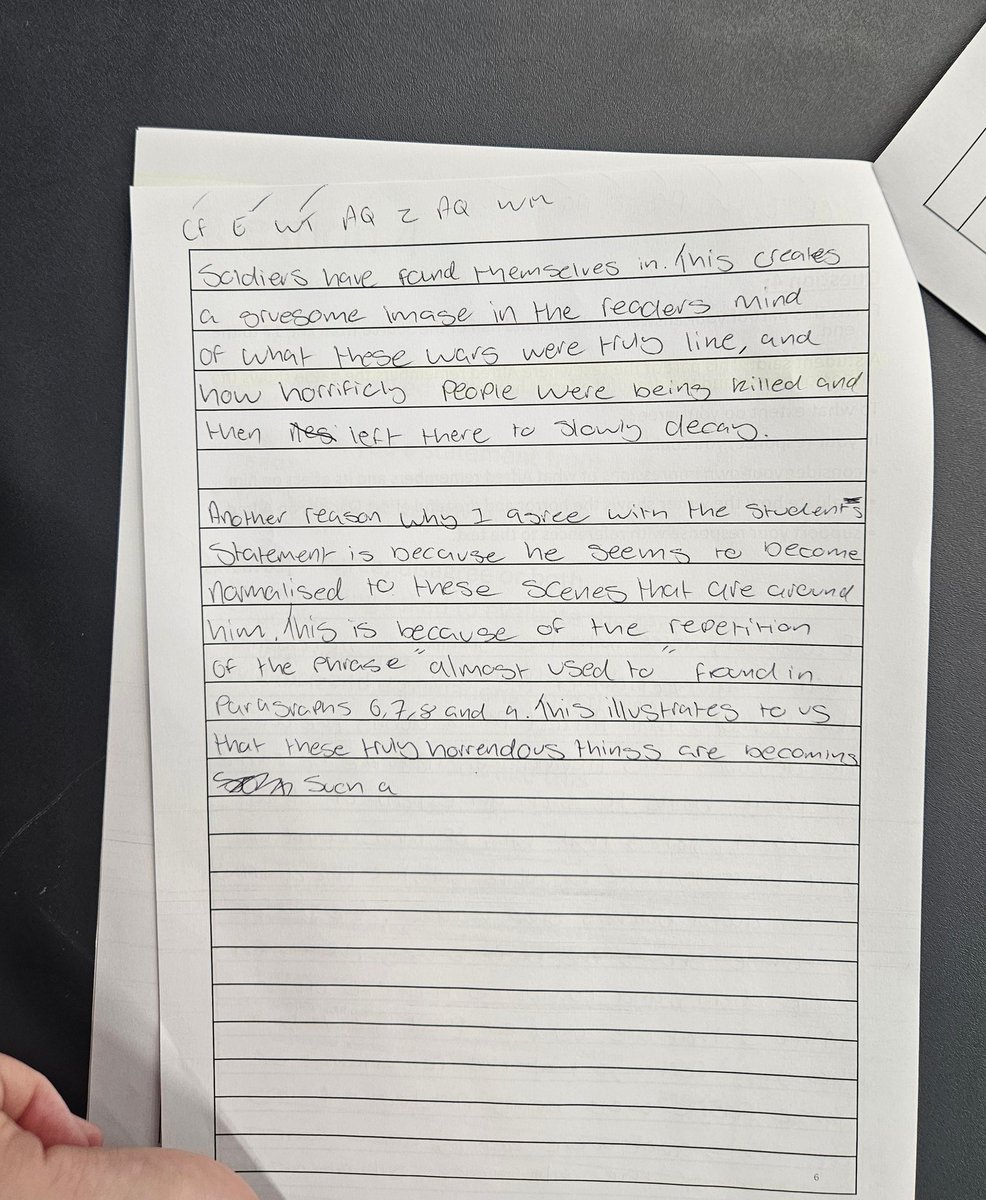 CF E WT AQ Z AQ WM
Soldiers have found themselves in. This creates
a gruesome image in the readers mind
of what these wars were truly line, and
how horrificly people were being killed and
then left there to slowly decay.
Another reason why I agree with the students
statement is because he seems to become
normalised to these scenes that are around
him. This is because of the repetition
of the phrase "almost used to" found in
paragraphs 6,7,8 and 9. This illustrates to us
that these truly horrendous things are becoming
such a
6